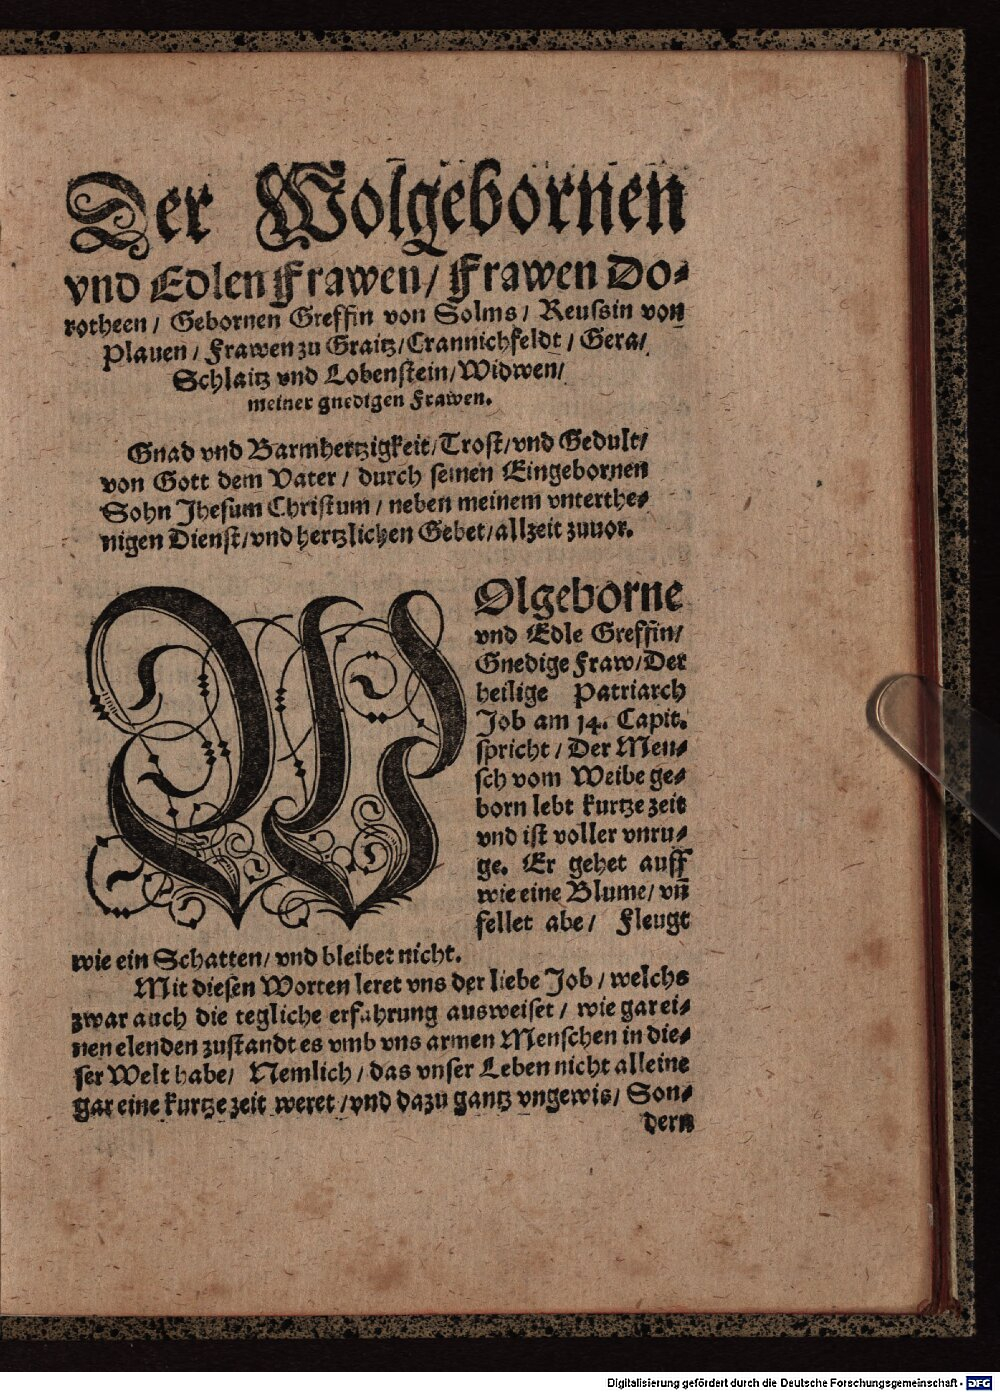 Der Wolgebornen
vnd Edlen Frawen/ Frawen Do-
rotheen/ Gebornen Greffin von Solms/ Reussin von
Plauen/ Frawen zu Graitz/ Crannichfeldt/ Gera/
Schlaitz vnd Lobenstein/ Widwen/
meiner gnedigen Frawen.
Gnad vnd Barmhertzigkeit/ Trost/ vnd Gedult/
von Gott dem Vater/ durch seinen Eingebornen
Sohn Jhesum Christum/ neben meinem vnterthe-
nigen Dienst/ vnd hertzlichen Gebet/ allzeit zuuor.
WOlgeborne
vnd Edle Greffin/
Gnedige Fraw/ Der
heilige Patriarch
Job am 14. Capit.
spricht/ Der Men-
sch vom Weibe ge-
born lebt kurtze zeit
vnd ist voller vnru-
ge. Er gehet auff
wie eine Blume/ vn̄
fellet abe/ Fleugt
wie ein Schatten/ vnd bleibet nicht.
Mit diesen Worten leret vns der liebe Job/ welchs
zwar auch die tegliche erfahrung ausweiset/ wie gar ei-
nen elenden zustandt es vmb vns armen Menschen in die-
ser Welt habe/ Nemlich/ das vnser Leben nicht alleine
gar eine kurtze zeit weret/ vnd dazu gantz vngewis/ Son-
dern
Digitalisierung gefördert durch die Deutsche Forschungsgemeinschaft - DFG